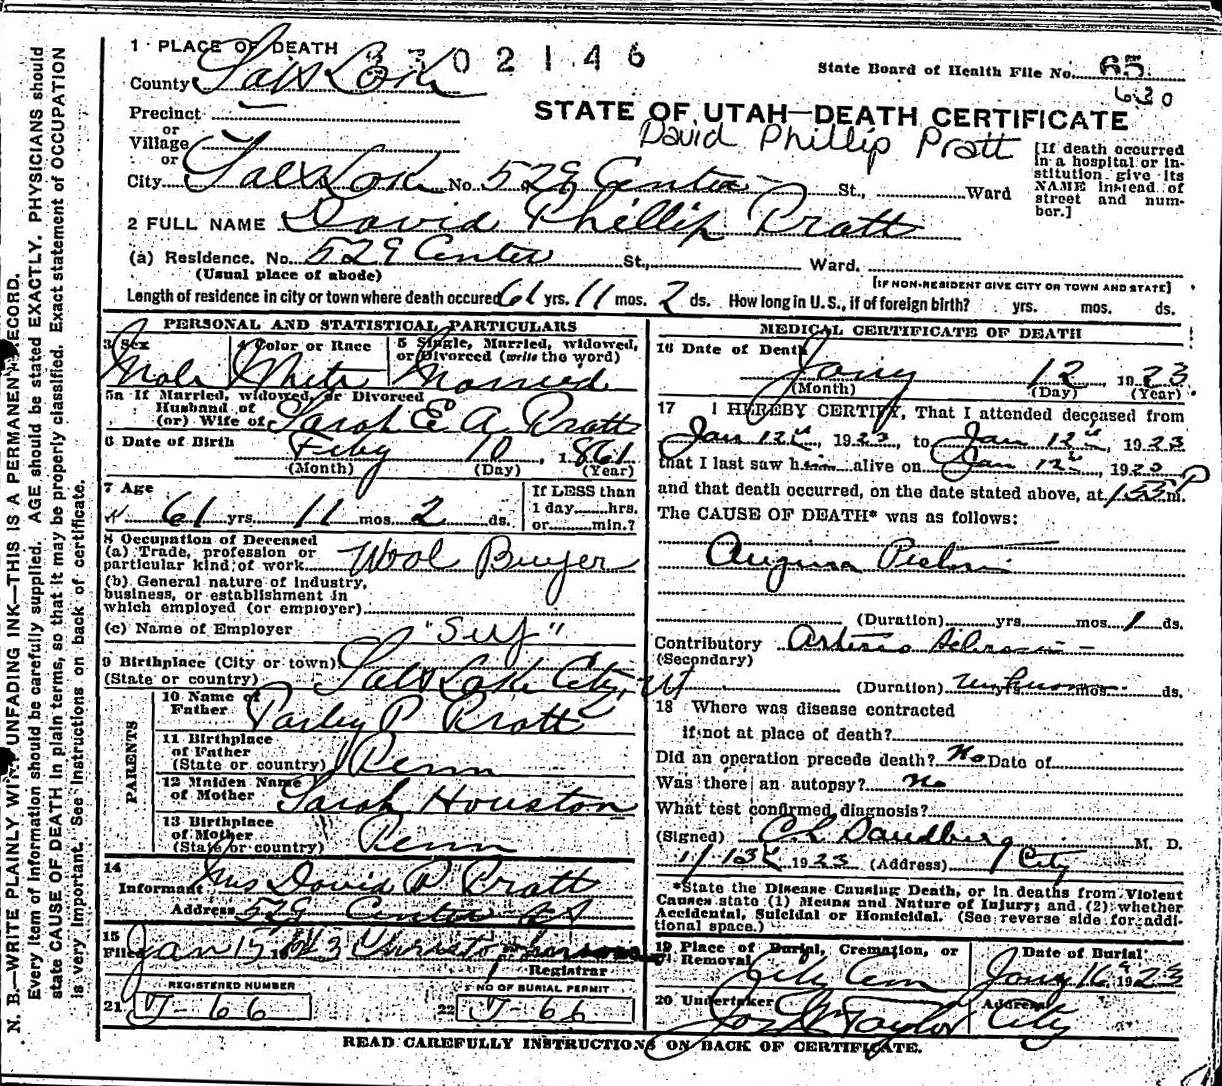 1 PLACE OF DEATH
2302146
State Board of Health File No. 65
630
County Salt Lake
STATE OF UTAH—DEATH CERTIFICATE
Precinct
or
Village
or
David Phillip Pratt
[If death occurred in a hospital or institution give its NAME instead of street and number.]
City Salt Lake No. 529 Center St., Ward
2 FULL NAME David Phillip Pratt
(a) Residence. No. 529 Center St., Ward.
(Usual place of abode)
[IF NON-RESIDENT GIVE CITY OR TOWN AND STATE]
Length of residence in city or town where death occured 61 yrs. 11 mos. 2 ds. How long in U.S., if of foreign birth? yrs. mos. ds.
PERSONAL AND STATISTICAL PARTICULARS
3 Sex
Male
4 Color or Race
White
5 Single, Married, widowed, or Divorced (write the word)
Married
5a If Married, widowed, or Divorced
Husband of
(or) Wife of Sarah E A Pratt
6 Date of Birth
Feby 10, 1861
(Month) (Day) (Year)
7 Age
61 yrs. 11 mos. 2 ds.
If LESS than
1 day hrs.
or min.?
8 Occupation of Deceased
(a) Trade, profession or
particular kind of work Wool Buyer
(b) General nature of Industry,
business, or establishment in
which employed (or employer)
(c) Name of Employer "Self"
9 Birthplace (City or town)
(State or country) Salt Lake City, Ut
PARENTS
10 Name of
Father Parley P Pratt
11 Birthplace
of Father
(State or country) Penn
12 Maiden Name
of Mother Sarah Houston
13 Birthplace
of Mother
(State or country) Penn
14
Informant Mrs David P Pratt
Address 529 Center St
15
Filed Jan 1923
Registrar
REGISTERED NUMBER
21 J-66
NO OF BURIAL PERMIT
22 J-66
MEDICAL CERTIFICATE OF DEATH
16 Date of Death
Jany 12 1923
(Month) (Day) (Year)
17 I HEREBY CERTIFY, That I attended deceased from
Jan 12th, 1923, to Jan 12th, 1923
that I last saw him alive on Jan 12th, 1923
and that death occurred, on the date stated above, at P m.
The CAUSE OF DEATH* was as follows:
Angina Pectoris
(Duration) yrs. mos. 1 ds.
Contributory Arterio Sclerosis -
(Secondary)
(Duration) unknown mos. ds.
18 Where was disease contracted
if not at place of death?
Did an operation precede death? No Date of
Was there an autopsy? No
What test confirmed diagnosis?
(Signed) C L Sandberg M. D.
1/13th 1923 (Address) City
*State the Disease Causing Death, or in deaths from Violent
Causes state (1) Means and Nature of Injury; and (2) whether
Accidental, Suicidal or Homicidal. (See reverse side for addi-
tional space.)
19 Place of Burial, Cremation, or
Removal
City Cem
Date of Burial
Jany 16th 1923
20 Undertaker
Jos Wm Taylor
Address
City
READ CAREFULLY INSTRUCTIONS ON BACK OF CERTIFICATE.
N. B.—WRITE PLAINLY WITH UNFADING INK—THIS IS A PERMANENT RECORD.
Every item of information should be carefully supplied. AGE should be stated EXACTLY. PHYSICIANS should
state CAUSE OF DEATH in plain terms, so that it may be properly classified. Exact statement of OCCUPATION
is very important. See instructions on back of certificate.